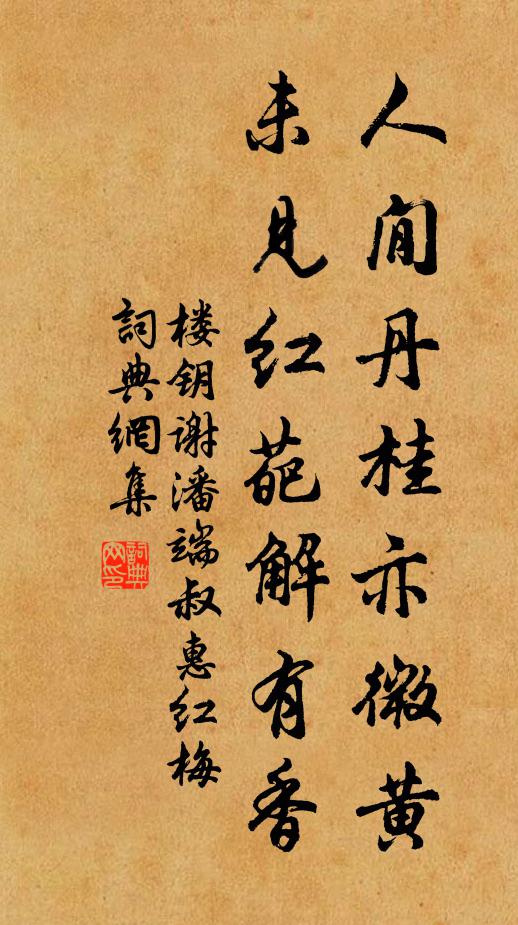 人間丹桂亦微黄
未見红葩解有香
楼钥谢潘端叔惠红梅
詞典網集
詞典網印